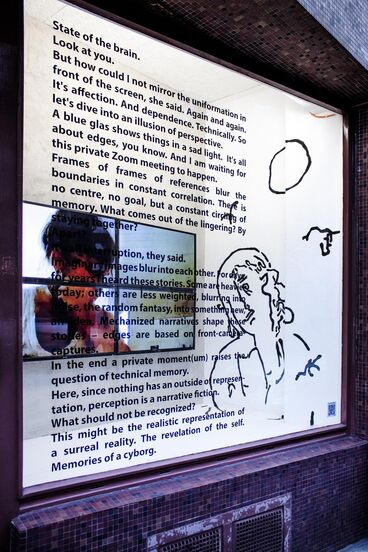 State of the brain.
Look at you.
But how could I not mirror the uniformation in
front of the screen, she said. Again and again.
It's affection. And dependence. Technically. So
let's dive into an illusion of perspective.
A blue glass shows things in a sad light. It's all
about edges, you know. And I am waiting for
this private Zoom meeting to happen.
Frames of frames of references blur the
boundaries in constant correlation. There is
no centre, no goal, but a constant circling of
memory. What comes out of the lingering? By
staying together?
they said.
Imaginary images blur into each other. For
for years I heard these stories. Some are heavy
today; others are less weighted, blurring into
the random fantasy, into something new,
an idea. Mechanized narratives shape these
stories – edges are based on front-camera
captures.
In the end a private moment(um) raises the
question of technical memory.
Here, since nothing has an outside of represen-
tation, perception is a narrative fiction.
What should not be recognized?
This might be the realistic representation of
a surreal reality. The revelation of the self.
Memories of a cyborg.